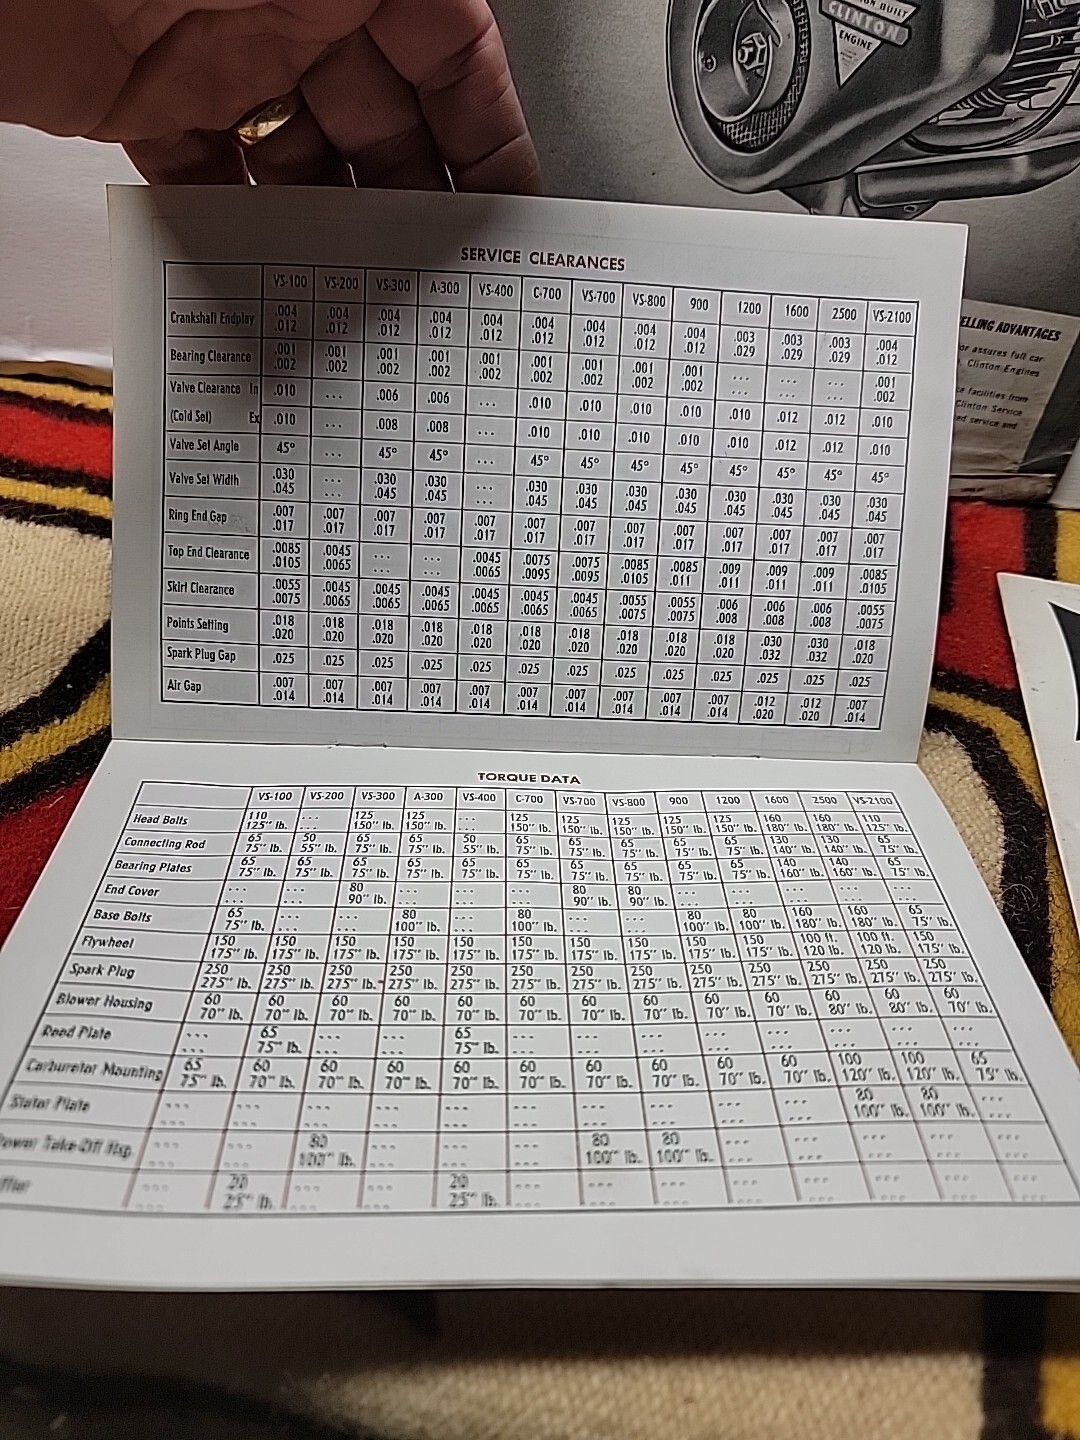 ON BUILT
CLINTON
ENGINE
ELLING ADVANTAGES
or assures full car
Clinton Engines
ce facilities from
Clinton Service
ed service and
SERVICE CLEARANCES
VS-100 VS-200 VS-300 A-300 VS-400 C-700 VS-700 VS-800 900 1200 1600 2500 VS-2100
Crankshaft Endplay .004 .004 .004 .004 .004 .004 .004 .004 .004 .003 .003 .003 .004
.012 .012 .012 .012 .012 .012 .012 .012 .012 .029 .029 .029 .012
Bearing Clearance .001 .001 .001 .001 .001 .001 .001 .001 .001 ... ... ... .001
.002 .002 .002 .002 .002 .002 .002 .002 .002 .002
Valve Clearance In .010 ... .006 .006 ... .010 .010 .010 .010 .010 .012 .012 .010
(Cold Set) Ex .010 ... .008 .008 ... .010 .010 .010 .010 .010 .012 .012 .010
Valve Set Angle 45° ... 45° 45° ... 45° 45° 45° 45° 45° 45° 45° 45°
Valve Set Width .030 ... .030 .030 ... .030 .030 .030 .030 .030 .030 .030 .030
.045 ... .045 .045 ... .045 .045 .045 .045 .045 .045 .045 .045
Ring End Gap .007 .007 .007 .007 .007 .007 .007 .007 .007 .007 .007 .007 .007
.017 .017 .017 .017 .017 .017 .017 .017 .017 .017 .017 .017 .017
Top End Clearance .0085 .0045 ... ... .0045 .0075 .0075 .0085 .0085 .009 .009 .009 .0085
.0105 .0065 ... ... .0065 .0095 .0095 .0105 .011 .011 .011 .011 .0105
Skirt Clearance .0055 .0045 .0045 .0045 .0045 .0045 .0045 .0055 .0055 .006 .006 .006 .0055
.0075 .0065 .0065 .0065 .0065 .0065 .0065 .0075 .0075 .008 .008 .008 .0075
Points Setting .018 .018 .018 .018 .018 .018 .018 .018 .018 .018 .030 .030 .018
.020 .020 .020 .020 .020 .020 .020 .020 .020 .020 .032 .032 .020
Spark Plug Gap .025 .025 .025 .025 .025 .025 .025 .025 .025 .025 .025 .025 .025
Air Gap .007 .007 .007 .007 .007 .007 .007 .007 .007 .007 .012 .012 .007
.014 .014 .014 .014 .014 .014 .014 .014 .014 .014 .020 .020 .014
TORQUE DATA
VS-100 VS-200 VS-300 A-300 VS-400 C-700 VS-700 VS-800 900 1200 1600 2500 VS-2100
Head Bolts 110 ... 125 125 ... 125 125 125 125 125 160 160 110
125" lb. ... 150" lb. 150" lb. ... 150" lb. 150" lb. 150" lb. 150" lb. 150" lb. 180" lb. 180" lb. 125" lb.
Connecting Rod 65 50 65 65 50 65 65 65 65 65 130 130 65
75" lb. 55" lb. 75" lb. 75" lb. 55" lb. 75" lb. 75" lb. 75" lb. 75" lb. 75" lb. 140" lb. 140" lb. 75" lb.
Bearing Plates 65 65 65 65 65 65 65 65 65 65 140 140 65
75" lb. 75" lb. 75" lb. 75" lb. 75" lb. 75" lb. 75" lb. 75" lb. 75" lb. 75" lb. 160" lb. 160" lb. 75" lb.
End Cover ... ... 80 ... ... ... 80 80 ... ... ... ... ...
... ... 90" lb. ... ... ... 90" lb. 90" lb. ... ... ... ... ...
Base Bolts 65 ... ... 80 ... 80 ... ... 80 80 160 160 65
75" lb. ... ... 100" lb. ... 100" lb. ... ... 100" lb. 100" lb. 180" lb. 180" lb. 75" lb.
Flywheel 150 150 150 150 150 150 150 150 150 150 100 ft. 100 ft. 150
175" lb. 175" lb. 175" lb. 175" lb. 175" lb. 175" lb. 175" lb. 175" lb. 175" lb. 175" lb. 120 lb. 120 lb. 175" lb.
Spark Plug 250 250 250 250 250 250 250 250 250 250 250 250 250
275" lb. 275" lb. 275" lb. 275" lb. 275" lb. 275" lb. 275" lb. 275" lb. 275" lb. 275" lb. 275" lb. 275" lb. 275" lb.
Blower Housing 60 60 60 60 60 60 60 60 60 60 60 60 60
70" lb. 70" lb. 70" lb. 70" lb. 70" lb. 70" lb. 70" lb. 70" lb. 70" lb. 70" lb. 80" lb. 80" lb. 70" lb.
Reed Plate ... 65 ... ... 65 ... ... ... ... ... ... ... ...
... 75" lb. ... ... 75" lb. ... ... ... ... ... ... ... ...
Carburetor Mounting 65 60 60 60 60 60 60 60 60 60 100 100 65
75" lb. 70" lb. 70" lb. 70" lb. 70" lb. 70" lb. 70" lb. 70" lb. 70" lb. 70" lb. 120" lb. 120" lb. 75" lb.
Stator Plate ... ... ... ... ... ... ... ... ... ... 80 80 ...
... ... ... ... ... ... ... ... ... ... 100" lb. 100" lb. ...
Power Take-Off Hsg. ... ... 80 ... ... ... 80 80 ... ... ... ... ...
... ... 100" lb. ... ... ... 100" lb. 100" lb. ... ... ... ... ...
ffler ... 20 ... ... 20 ... ... ... ... ... ... ... ...
... 25" lb. ... ... 25" lb. ... ... ... ... ... ... ... ...